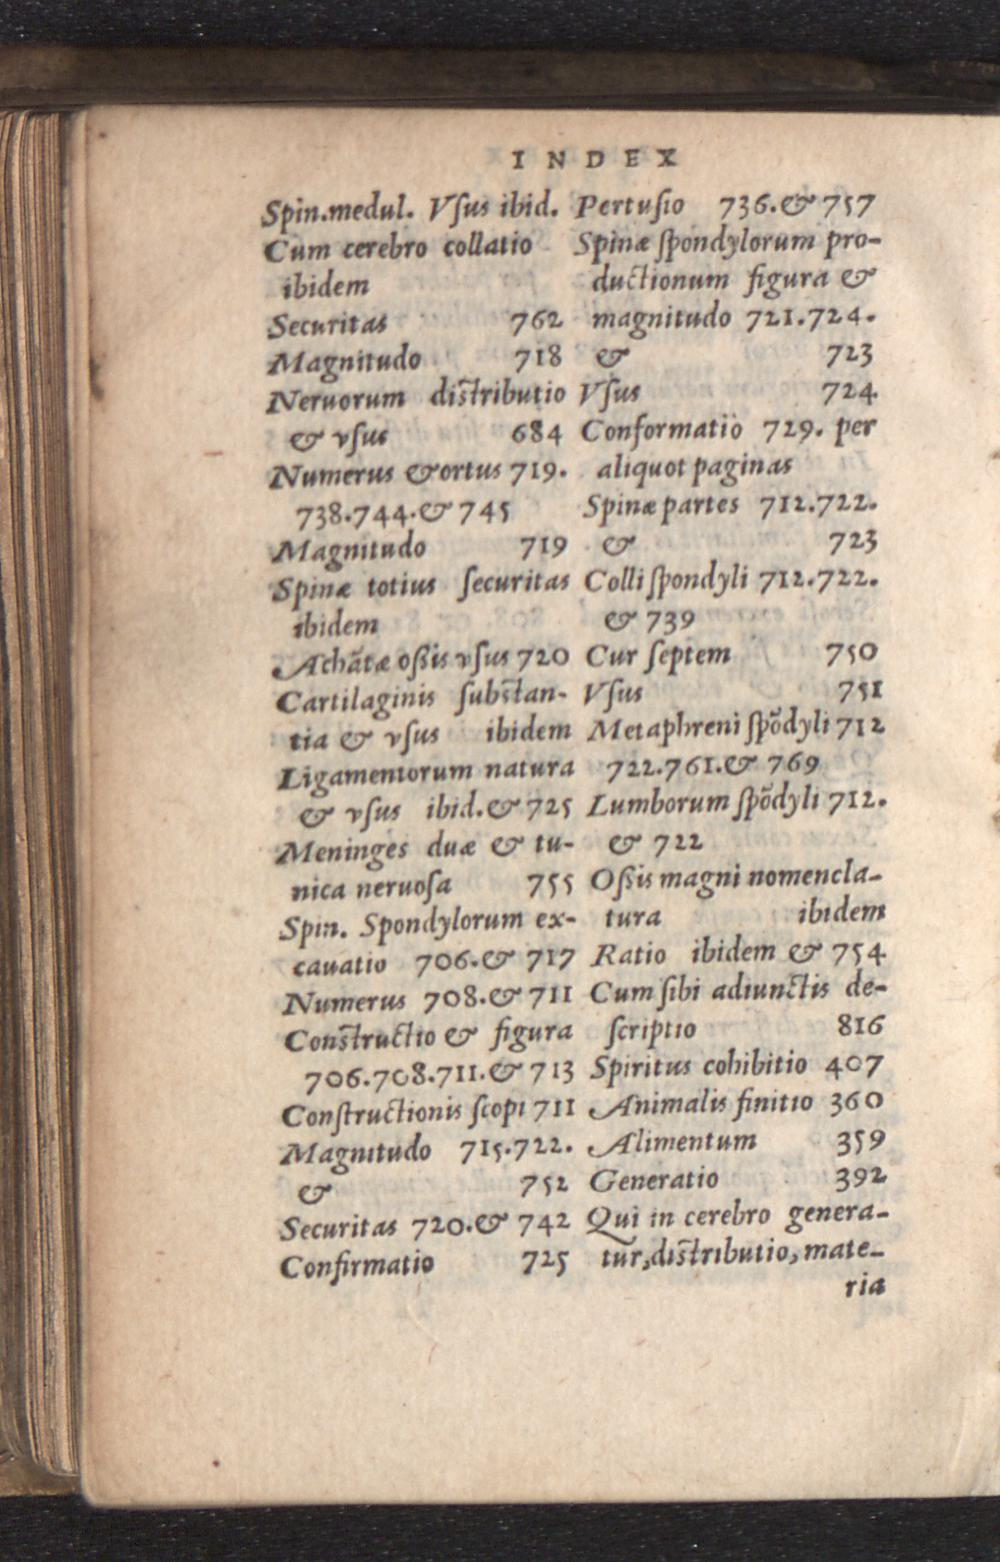 INDEX
Spin.medul. Vſus ibid.
Cum cerebro collatio
ibidem
Securitas 762
Magnitudo 718
Neruorum distributio
& vſus 684
Numerus & ortus 719.
738.744.& 745
Magnitudo 719
Spinæ totius ſecuritas
ibidem
Achātæ oßis vſus 720
Cartilaginis ſubstan-
tia & vſus ibidem
Ligamentorum natura
& vſus ibid.& 725
Meninges duæ & tu-
nica neruoſa 755
Spin. Spondylorum ex-
cauatio 706.& 717
Numerus 708.& 711
Constructio & figura
706.708.711.& 713
Conſtructionis ſcopi 711
Magnitudo 715.722.
& 752
Securitas 720.& 742
Confirmatio 725
Pertuſio 736.& 757
Spinæ ſpondylorum pro-
ductionum figura &
magnitudo 721.724.
& 723
Vſus 724
Conformatiō 729. per
aliquot paginas
Spinæ partes 712.722.
& 723
Colli ſpondyli 712.722.
& 739
Cur ſeptem 750
Vſus 751
Metaphreni ſpōdyli 712
722.761.& 769
Lumborum ſpōdyli 712.
& 722
Oßis magni nomencla-
tura ibidem
Ratio ibidem & 754
Cum ſibi adiunctis de-
ſcriptio 816
Spiritus cohibitio 407
Animalis finitio 360
Alimentum 359
Generatio 392
Qui in cerebro genera-
tur,distributio,mate-
ria